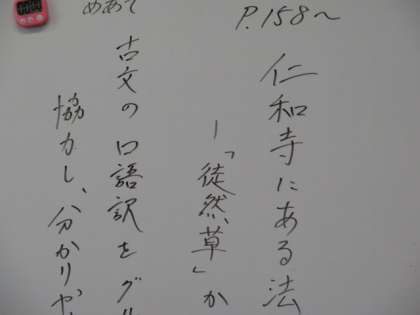 P.158～
仁和寺にある法
―「徒然草」か
めあて
古文の口語訳をグル
協力し、分かりや